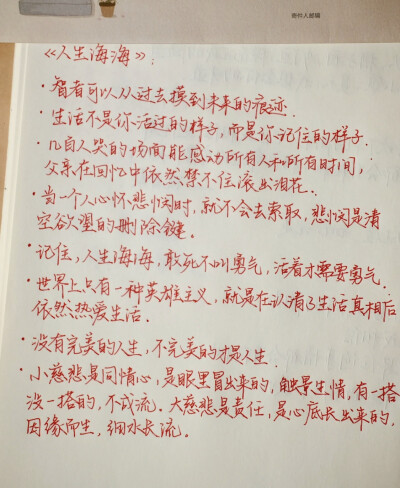 《人生海海》:
·智者可以从过去摸到未来的痕迹.
·生活不是你活过的样子,而是你记住的样子.
·几百人哭的场面能感动所有人和所有时间,
父亲在回忆中依然禁不住滚出泪在.
·当一个人心怀悲悯时,就不会去索取,悲悯是清
空欲望的删除键.
·记住,人生海海,敢死不叫勇气,活着才需要勇气.
·世界上只有一种英雄主义,就是在认清了生活真相后
依然热爱生活.
·没有完美的人生,不完美的才是人生.
·小慈悲是同情心,是眼里冒出来的,触景生情,有一搭
没一搭的,不成流。大慈悲是责任,是心底长出来的,
因缘而生,细水长流。